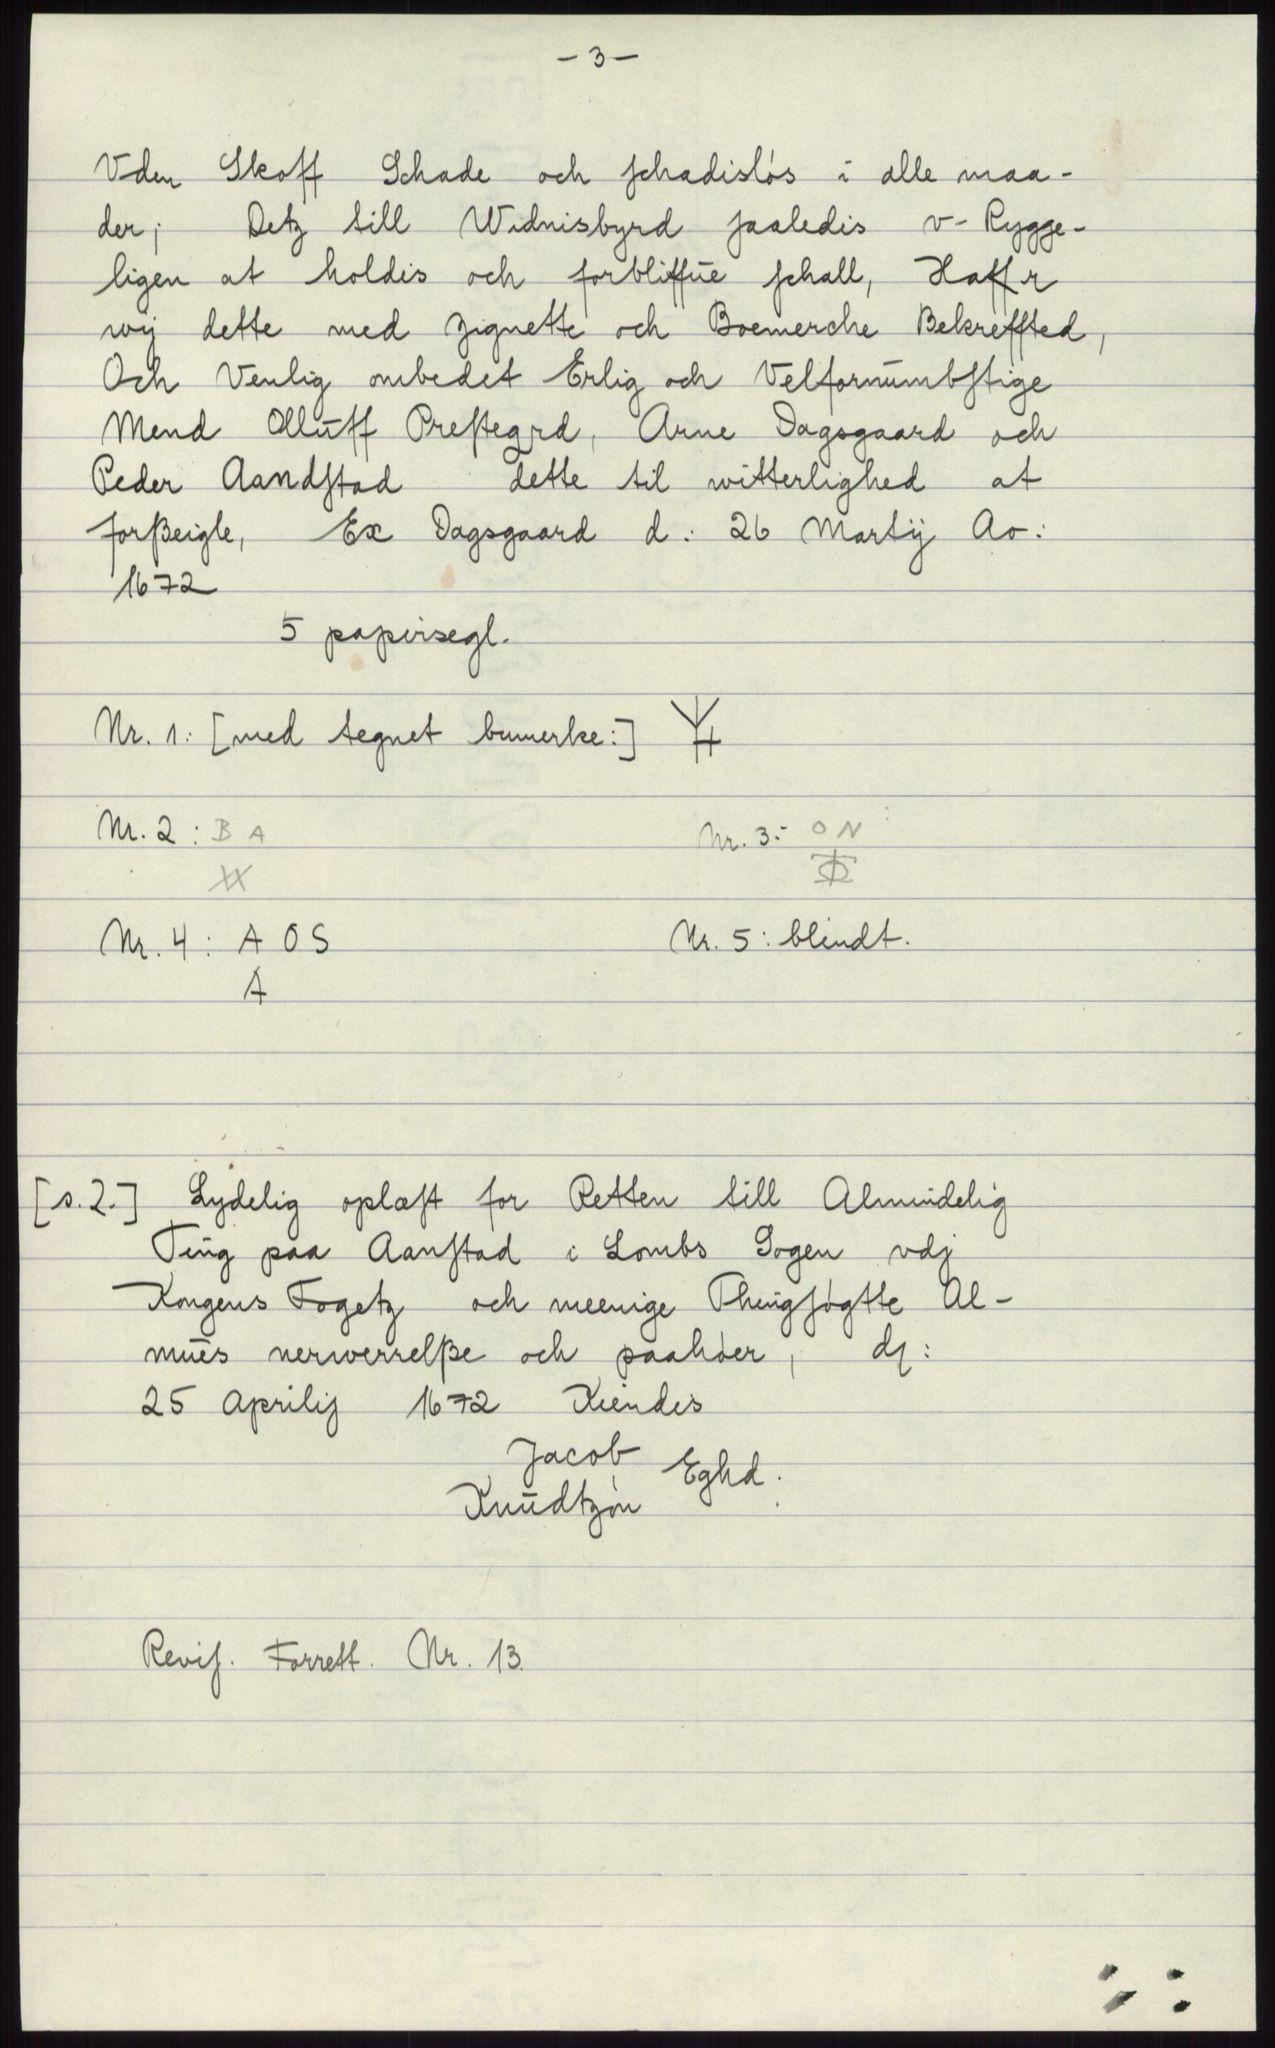 - 3 -
Vden Skoff Schade och schadisløs i alle maa-
der; Detz till Widnisbyrd saaledis v-Rygge-
ligen at holdis och forbliffue schall, Haffr
wij dette med zignette och Boemerche Bekreffted,
Och Venlig ombedet Erlig och Velfornumbstige
Mend Olluff Prestegrd, Arne Dagsgaard och
Peder Aandstad dette til witterlighed at
forßeigle, Ex Dagsgaard d: 26 Martij Ao:
1672
5 papirsegl.
Nr. 1: [med tegnet bumerke:]
Nr. 2: B A
Nr. 3: O N
Nr. 4: A O S
A
Nr. 5: blindt.
[s.2.] Lydelig oplæst for Retten till Almindelig
Ting paa Aanstad i Lombs Sogen vdj
Kongens Fogetz och meenige Thingsøgtte Al-
mues nerwerrelße och paahøer, dj:
25 Aprilij 1672 Kiendis
Jacob
Knudtzøn Eghd.
Revis. Forrett. Nr. 13.